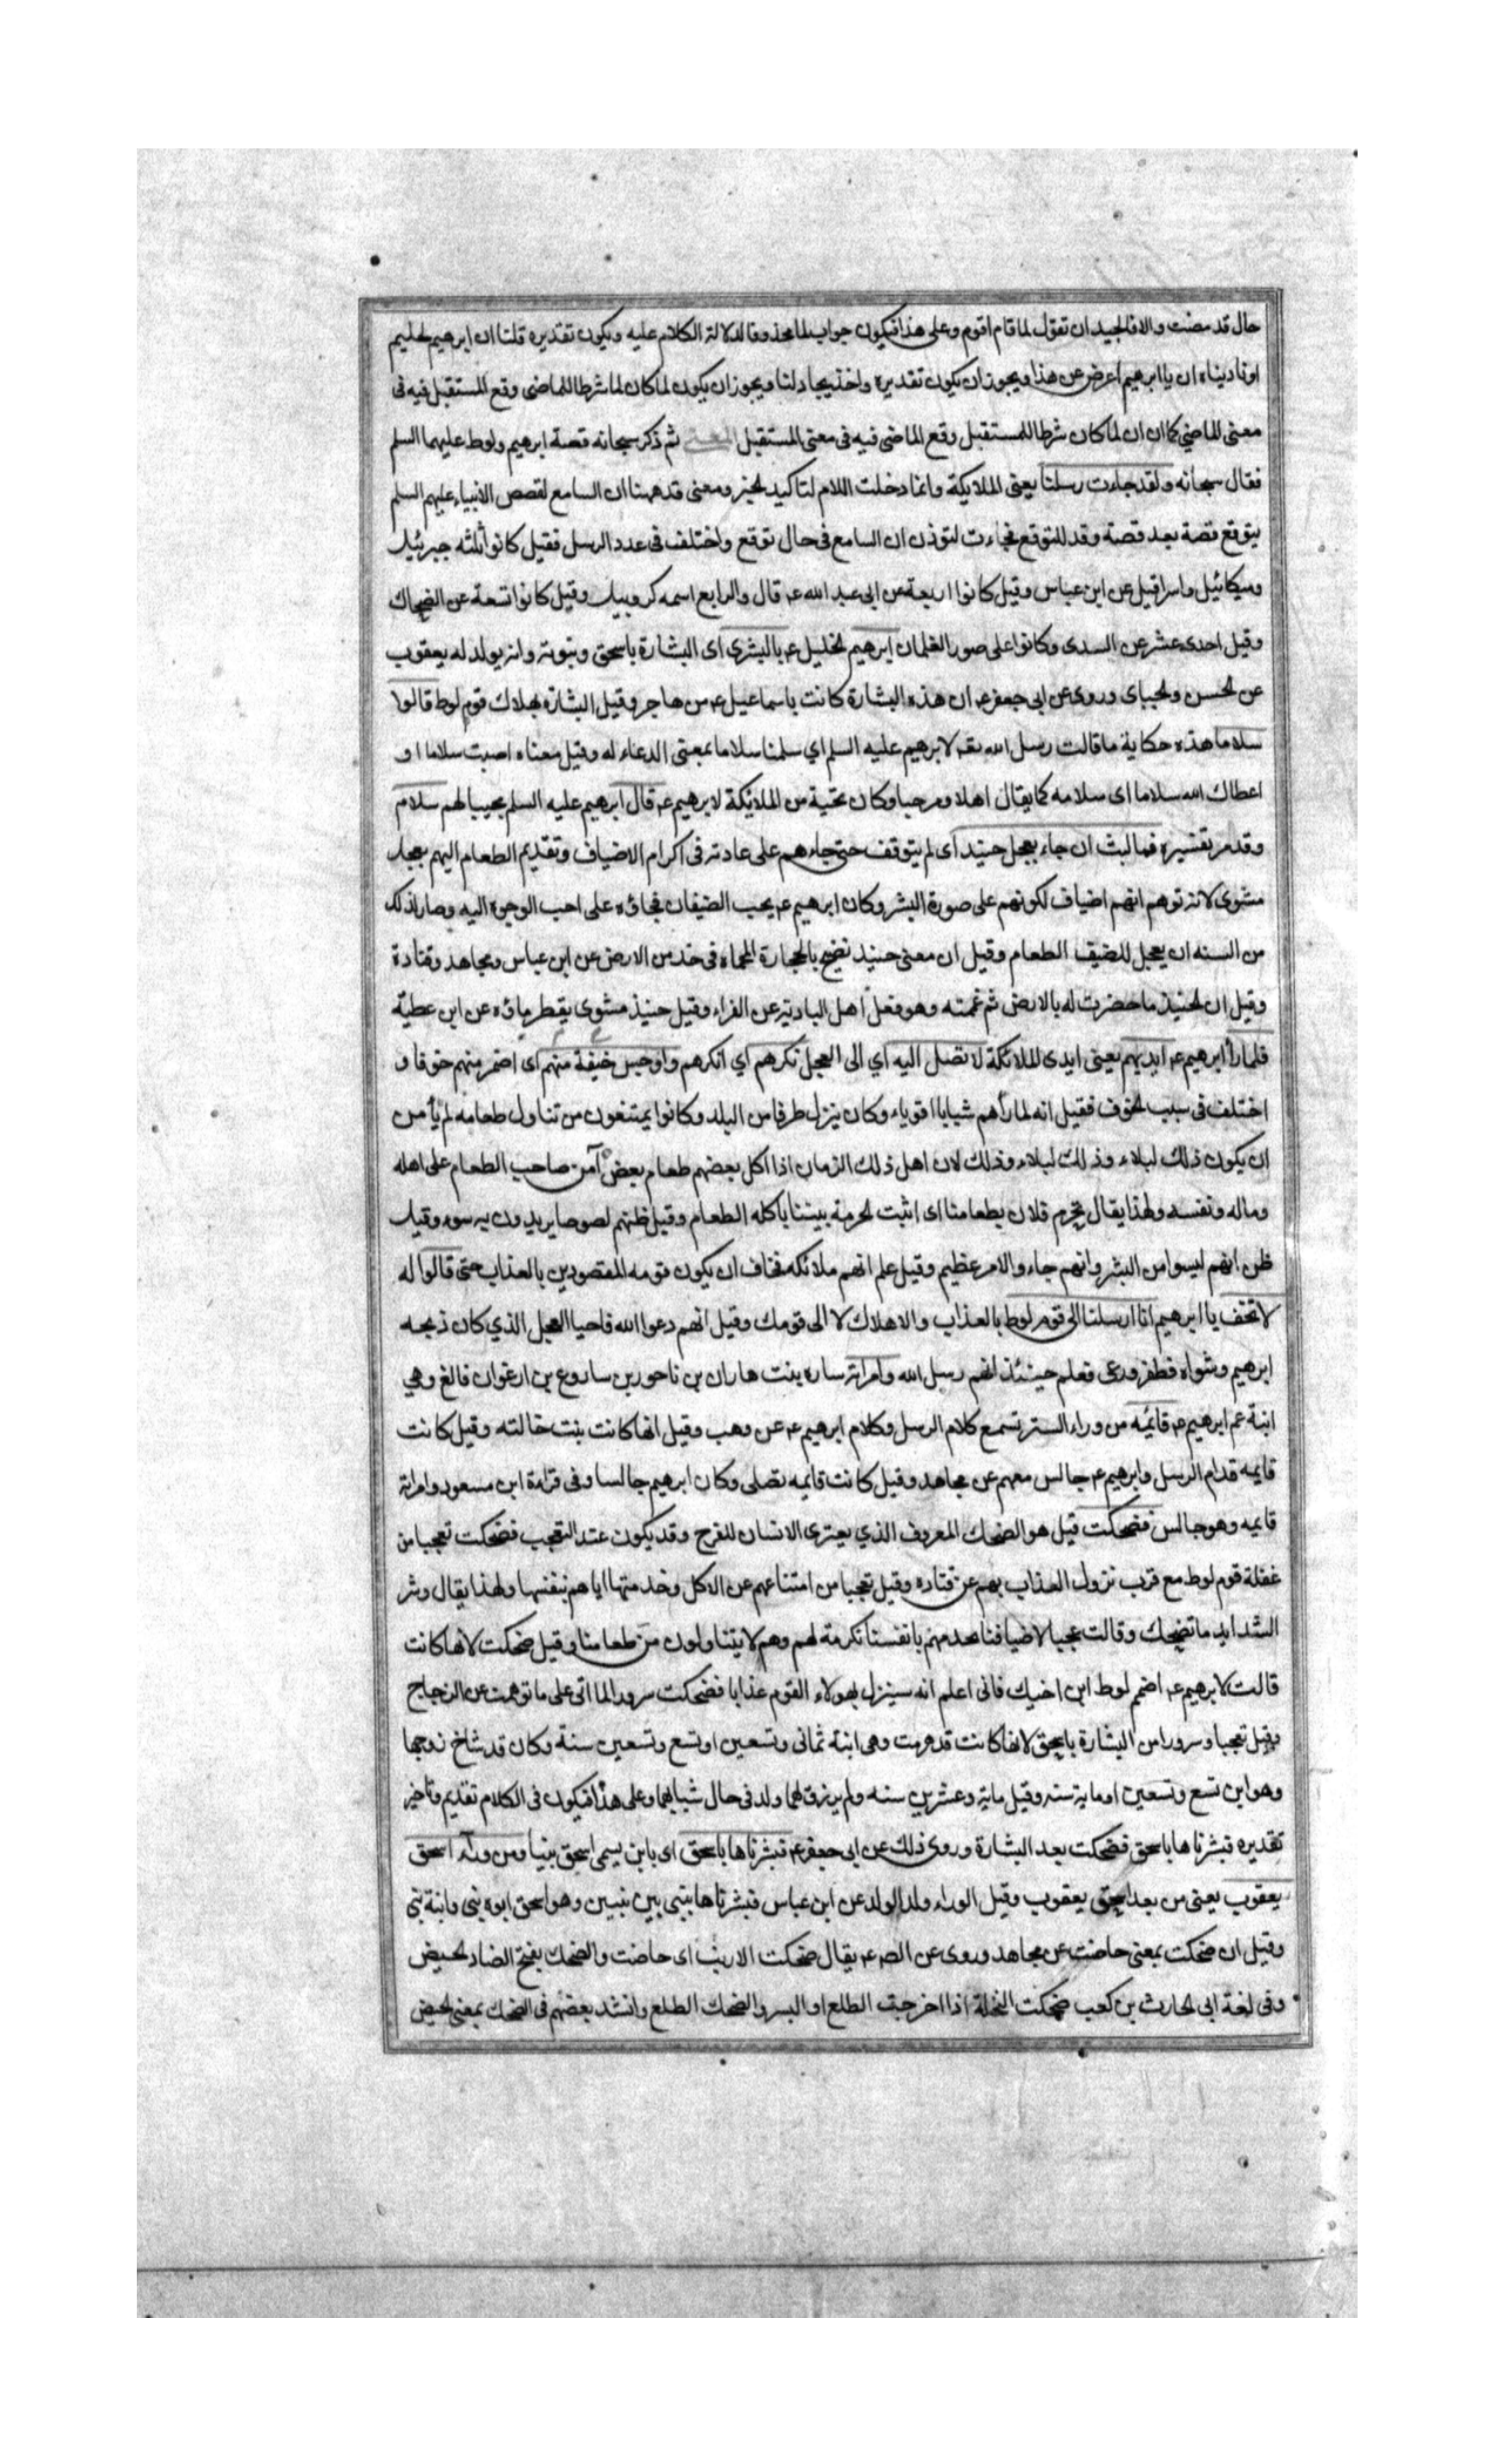 حال قد مضت والا فالجيد ان تقول لما قام اقوم وعلى هذا فيكون جواب لما محذوفا لدلالة الكلام عليه ويكون تقديره قلنا ان ابرهيم لحليم
او ناديناه ان يا ابرهيم اعرض عن هذا ويجوز ان يكون تقديره واخذ يجادلنا ويجوز ان يكون لما كان لما شرطا للماضى وقع المستقبل فيه فى
معنى الماضى كما ان ان لما كان شرطا للمستقبل وقع الماضى فيه فى معنى المستقبل المعنى ثم ذكر سبحانه قصة ابرهيم ولوط عليهما السلم
فقال سبحانه ولقد جاءت رسلنا يعنى الملايكة وانما دخلت اللام لتاكيد الخبر ومعنى قد ههنا ان السامع لقصص الانبياء عليهم السلم
يتوقع قصة بعد قصة وقد للتوقع فجاءت لتوذن ان السامع فى حال توقع واختلف فى عدد الرسل فقيل كانوا ثلثه جبرئيل
وميكائيل واسرافيل عن ابن عباس وقيل كانوا اربعة عن ابى عبد الله عم قال والرابع اسمه كروبيل وقيل كانوا تسعة عن الضحاك
وقيل احدى عشر عن السدى وكانوا على صور الغلمان ابرهيم الخليل عم بالبشرى اى البشارة باسحق ونبوته وانه يولد له يعقوب
عن الحسن والجباى وروى عن ابى جعفر عم ان هذه البشارة كانت باسماعيل عم من هاجر وقيل البشارة بهلاك قوم لوط قالوا
سلاما هذه حكاية ما قالت رسل الله تعه لابرهيم عليه السلم اي سلمنا سلاما بمعنى الدعاء له وقيل معناه اصبت سلاما او
اعطاك الله سلاما اى سلامه كما يقال اهلا ومرحبا وكان تحية من الملائكة لابرهيم عم قال ابرهيم عليه السلم مجيبا لهم سلام
وقد مر تفسيره فما لبث ان جاء بعجل حنيذ اى لم يتوقف حتى جاءهم على عادته فى اكرام الاضياف وتقديم الطعام اليهم بعجل
مشوى لانه توهم انهم اضياف لكونهم على صورة البشر وكان ابرهيم عم يحب الضيفان فجاؤه على احب الوجوه اليه وصار لذلك
من السنه ان يعجل للضيف الطعام وقيل ان معنى حنيذ نضيج بالحجارة المحماه فى خد من الارض عن ابن عباس ومجاهد وقتادة
وقيل ان الحنيذ ما حضرت له بالارض ثم غممته وهو فعل اهل البادية عن الفراء وقيل حنيذ مشوى يقطر ماؤه عن ابن عطية
فلما رأ ابرهيم عم ايديهم يعنى ايدى الملائكة لا تصل اليه اي الى العجل نكرهم اي انكرهم واوجس خيفة منهم اى اضمر منهم خوفا و
اختلف فى سبب الخوف فقيل انه لما رأهم شبابا اقوياء وكان ينزل طرفا من البلد وكانوا يمتنعون من تناول طعامه لم يأمن
ان يكون ذلك لبلاء وذلك لبلاء وذلك لان اهل ذلك الزمان اذا اكل بعضهم طعام بعض آمن صاحب الطعام على اهله
وماله ونفسه ولهذا يقال تحرم فلان بطعامنا اى اثبت الحرمة بيننا باكله الطعام وقيل ظنهم لصوصا يريدون به سوء وقيل
ظن انهم ليسوا من البشر وانهم جاءوا لامر عظيم وقيل علم انهم ملائكه فخاف ان يكون قومه المقصودين بالعذاب حتى قالوا له
لا تخف يا ابرهيم انا ارسلنا الى قوم لوط بالعذاب والاهلاك لا الى قومك وقيل انهم دعوا الله فاحيا العجل الذي كان ذبحه
ابرهيم وشواه فطفر ورعى فعلم حينئذ انهم رسل الله وامراته ساره بنت هاران بن ناحور بن ساروع بن ارغوان فالغ وهي
ابنة عم ابرهيم عم قائمه من وراء الستر تسمع كلام الرسل وكلام ابرهيم عم عن وهب وقيل انها كانت بنت خالته وقيل كانت
قايمه قدام الرسل وابرهيم عم جالس معهم عن مجاهد وقيل كانت قايمه تصلى وكان ابرهيم جالسا وفى قراءة ابن مسعود وامراته
قايمه وهو جالس فضحكت قيل هو الضحك المعروف الذي يعترى الانسان للفرح وقد يكون عند التعجب فضحكت تعجبا من
غفلة قوم لوط مع قرب نزول العذاب بهم عن قتاده وقيل تعجبا من امتناعهم عن الاكل وخدمتها اياهم بنفسها ولهذا يقال وشر
الشدايد ما تضحك وقالت عجبا لاضيافنا نخدمهم بانفسنا تكرمة لهم وهم لا يتناولون من طعامنا وقيل ضحكت لانها كانت
قالت لابرهيم عم اضمم لوط ابن اخيك فانى اعلم انه سينزل بهولاء القوم عذابا فضحكت سرورا لما اتى على ما توهمت عن الزجاج
وقيل تعجبا وسرورا من البشارة باسحق لانها كانت قد هرمت وهى ابنة ثمانى وتسعين او تسع وتسعين سنة وكان قد شاخ زوجها
وهو ابن تسع وتسعين او ماية سنه وقيل ماية وعشرين سنه ولم يرزق لهما ولد فى حال شبابهما وعلى هذا فيكون فى الكلام تقديم وتاخير
تقديره فبشرناها باسحق فضحكت بعد البشارة وروى ذلك عن ابى جعفر عم فبشرناها باسحق اى بابن يسمى اسحق نبيا ومن ورآء اسحق
يعقوب يعنى من بعد اسحق يعقوب وقيل الوراء ولد الولد عن ابن عباس فبشرناها بنبى بين نبيين وهو اسحق ابوه نبى وابنه نبى
وقيل ان ضحكت بمعنى حاضت عن مجاهد وروى عن الصه عم يقال ضحكت الارنب اى حاضت والضحك بفتح الضاد الحيض
وفى لغة ابى الحارث بن كعب ضحكت النخلة اذا اخرجت الطلع او البسر والضحك الطلع وانشد بعضهم فى الضحك بمعنى الحيض